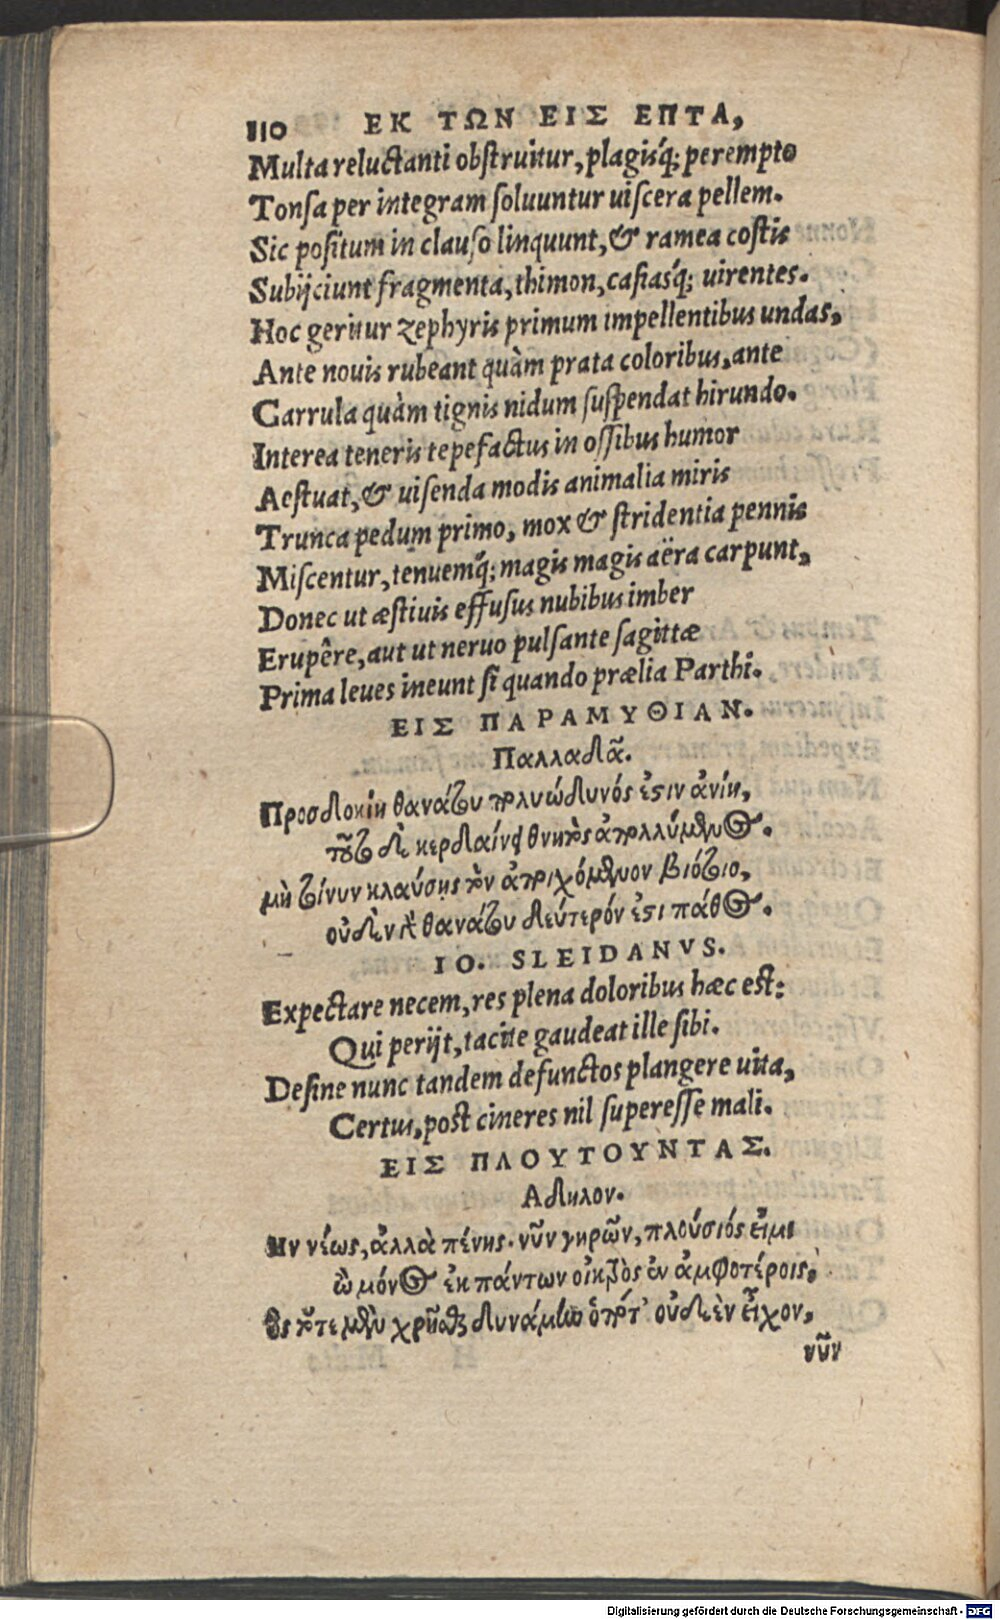 110 ΕΚ ΤΩΝ ΕΙΣ ΕΠΤΑ,
Multa reluctanti obstruitur, plagisq́; perempto
Tonsa per integram soluuntur uiscera pellem.
Sic positum in clauso linquunt, & ramea costis
Subijciunt fragmenta, thimon, casiasq́; uirentes.
Hoc geritur zephyris primum impellentibus undas,
Ante nouis rubeant quàm prata coloribus, ante
Garrula quàm tignis nidum suspendat hirundo.
Interea teneris tepefactus in ossibus humor
Aestuat, & uisenda modis animalia miris
Trunca pedum primo, mox & stridentia pennis
Miscentur, tenuemq́; magis magis aëra carpunt,
Donec ut æstiuis effusus nubibus imber
Erupêre, aut ut neruo pulsante sagittæ
Prima leues ineunt si quando prælia Parthi.
ΕΙΣ ΠΑΡΑΜΥΘΙΑΝ.
Παλλαδᾶ.
Προσδοκίη θανάτου πολυώδυνός ἐστιν ἀνίη,
τοῦτο δὲ κερδαίνει θνητὸς ἀπολλύμενος.
μὴ τοίνυν κλαύσῃς τὸν ἀποιχόμενον βιότοιο,
οὐδὲν γὰρ θανάτου δεύτερόν ἐστι πάθος.
IO. SLEIDANVS.
Expectare necem, res plena doloribus hæc est:
Qui perijt, tacite gaudeat ille sibi.
Desine nunc tandem defunctos plangere uita,
Certus, post cineres nil superesse mali.
ΕΙΣ ΠΛΟΥΤΟΥΝΤΑΣ.
Αδηλον.
Ην νέως, ἀλλὰ πένης. νῦν γηρῶν, πλούσιός εἰμι
ὦ μόνος ἐκ πάντων οἰκτρὸς ἐν ἀμφοτέροις,
ὃς τότε μὲν χρῆσθαι δυνάμην ὁπότ' οὐδὲν εἶχον,
νῦν
Digitalisierung gefördert durch die Deutsche Forschungsgemeinschaft - DFG